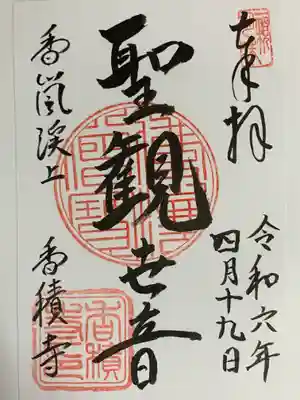 奉拝
令和六年
四月十九日
聖観世音
香嵐渓上
香積寺